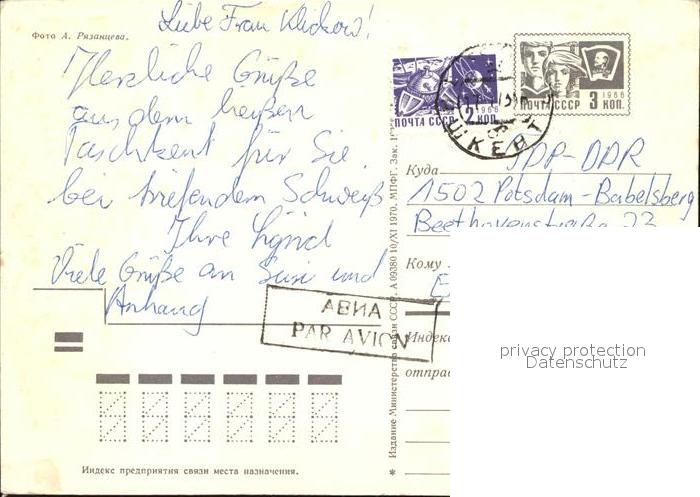 Liebe Frau Klickow!
Фото А. Рязанцева.
Herzliche Grüße
aus dem heißen
Taschkent für Sie
bei triefendem Schweiß
Ihre
Viele Grüße an Susi und
Anhang
АВИА
PAR AVION
Индекс предприятия связи места назначения.
* Издание Министерства связи СССР. А 09380 10/XI 1970. МПФГ. Зак.
ПОЧТА СССР
1966
2 КОП.
ШКЕНТ
ПОЧТА СССР
1966
3 КОП.
Куда
DDR
1502 Potsdam-Babelsberg
Beethovenstraße 23
Кому
Индекс
отправ
privacy protection
Datenschutz